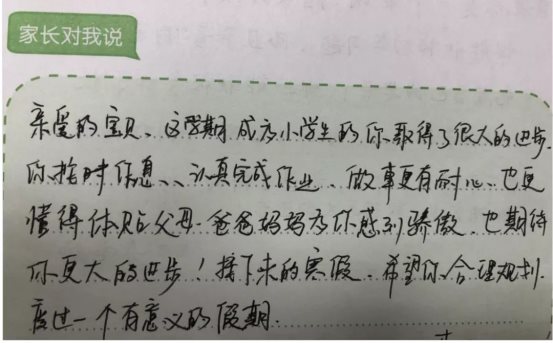 家长对我说
亲爱的宝贝、这学期成为小学生的你取得了很大的进步.
你按时作息、、认真完成作业、做事更有耐心、也更
懂得体贴父母.爸爸妈妈为你感到骄傲、也期待
你更大的进步！接下来的寒假、希望你合理规划.
度过一个有意义的假期.